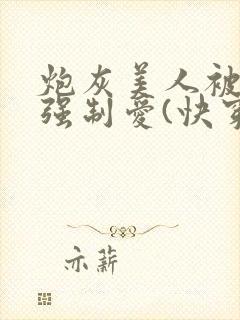 炮灰美人被
强制爱(快穿
亦薪